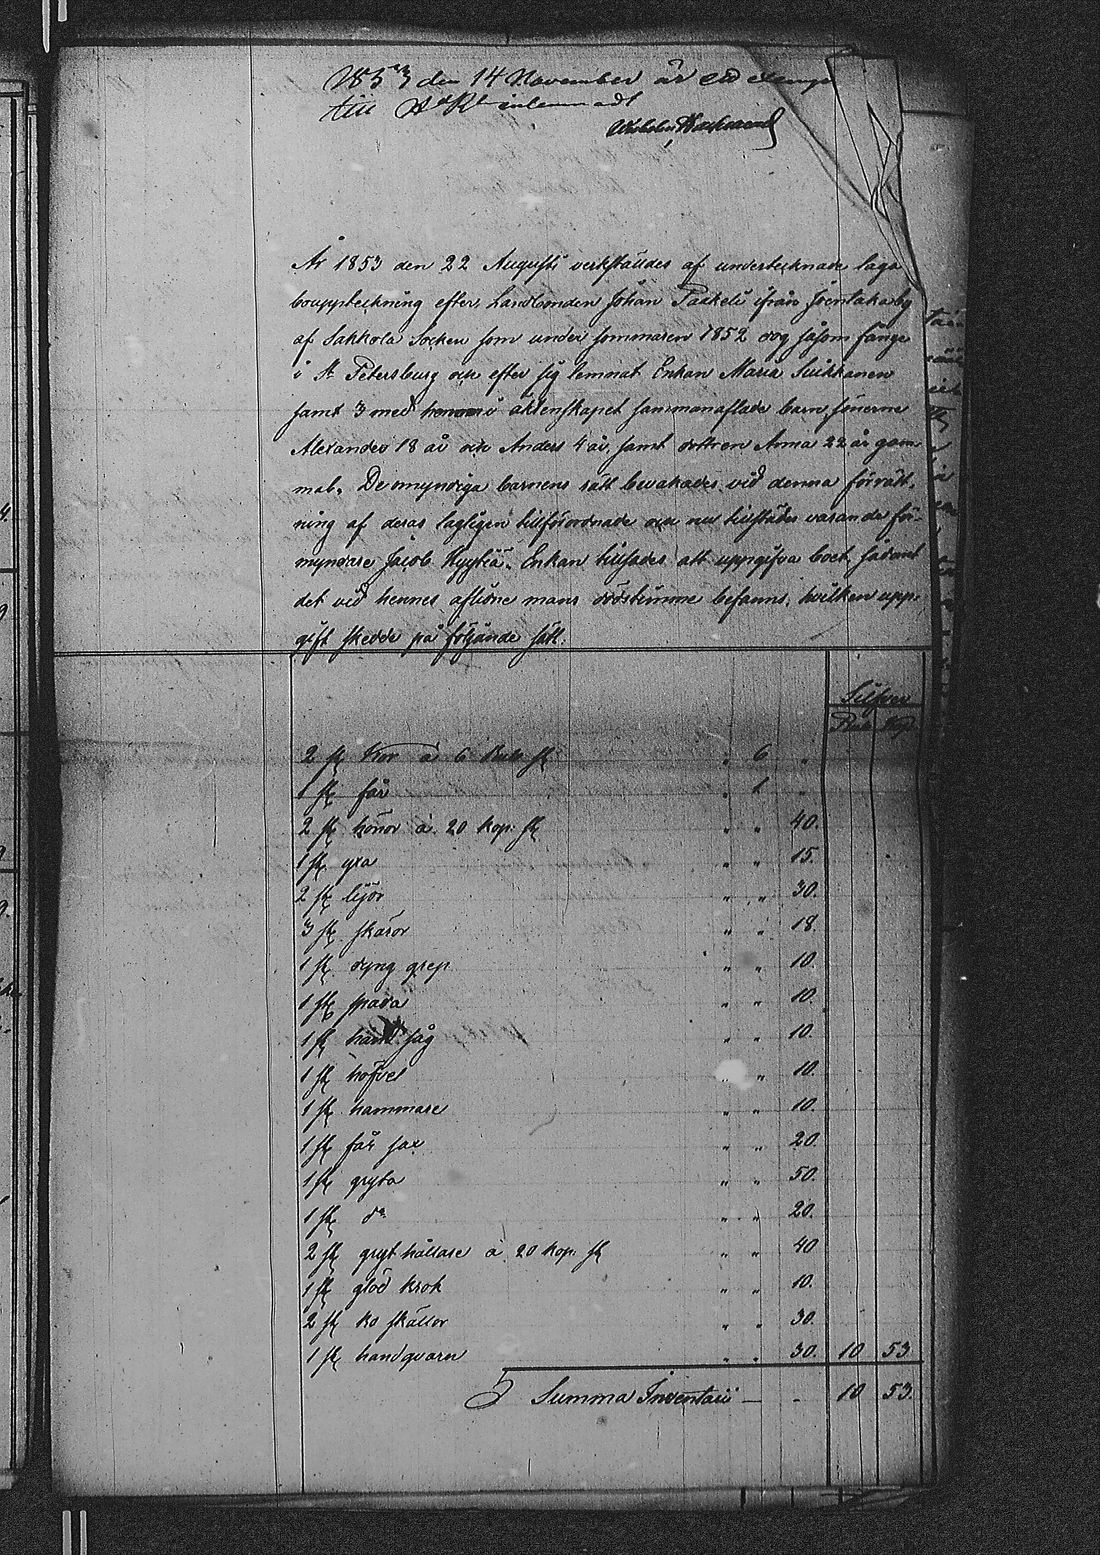 1853 den 14 November är ett exempl
till HdRt inlemnadt
År 1853 den 22 Augusti verkstäldes af undertecknade laga
bouppteckning efter landbonden Johan Paakeli ifrån Joentaka by
af Sakkola Socken som under sommaren 1852 dog såsom fånge
i St Petersburg och efter sig lemnat Enkan Maria Suikkanen
samt 3 med henne i äktenskapet sammanaflade barn, sönerne
Alexander 18 år och Anders 4 år, samt dottren Anna 22 år gam-
mal. De omyndiga barnens rätt bevakades vid denna förrätt-
ning af deras lagligen tillförordnade och nu tillstädes varande för-
myndare Jacob Hyytiä. Enkan tillsades att uppgifva boet sådant
det vid hennes aflidne mans dödstimme befanns, hvilken upp-
gift skedde på följande sätt:
Silfver
Rub. Kop.
2 st kor à 6 Rub. st " 6 "
1 st får " 1 "
2 st hönor à 20 kop. st " " 40.
1 st yxa " " 15.
2 st lijor " " 30.
3 st skäror " " 18.
1 st dyng grep " " 10.
1 st spada " " 10.
1 st hand såg " " 10.
1 st höfvel " " 10.
1 st hammare " " 10.
1 st får sax " " 20.
1 st gryta " " 50.
1 st do " " 20.
2 st gryt hållare à 20 kop. st " " 40
1 st glöd krok " " 10.
2 st ko skällor " " 30.
1 st handqvarn " " 30. 10 53
Summa Inventarii — - 10 53.